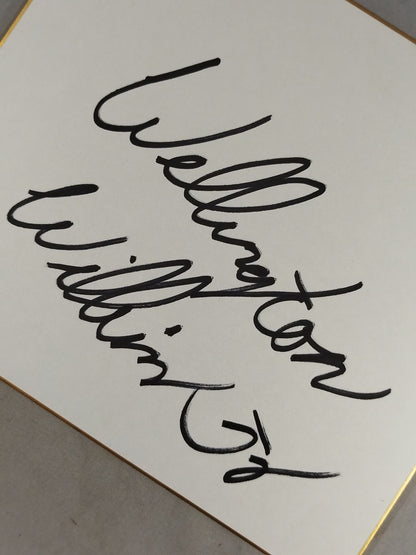 Wellington
William Jr